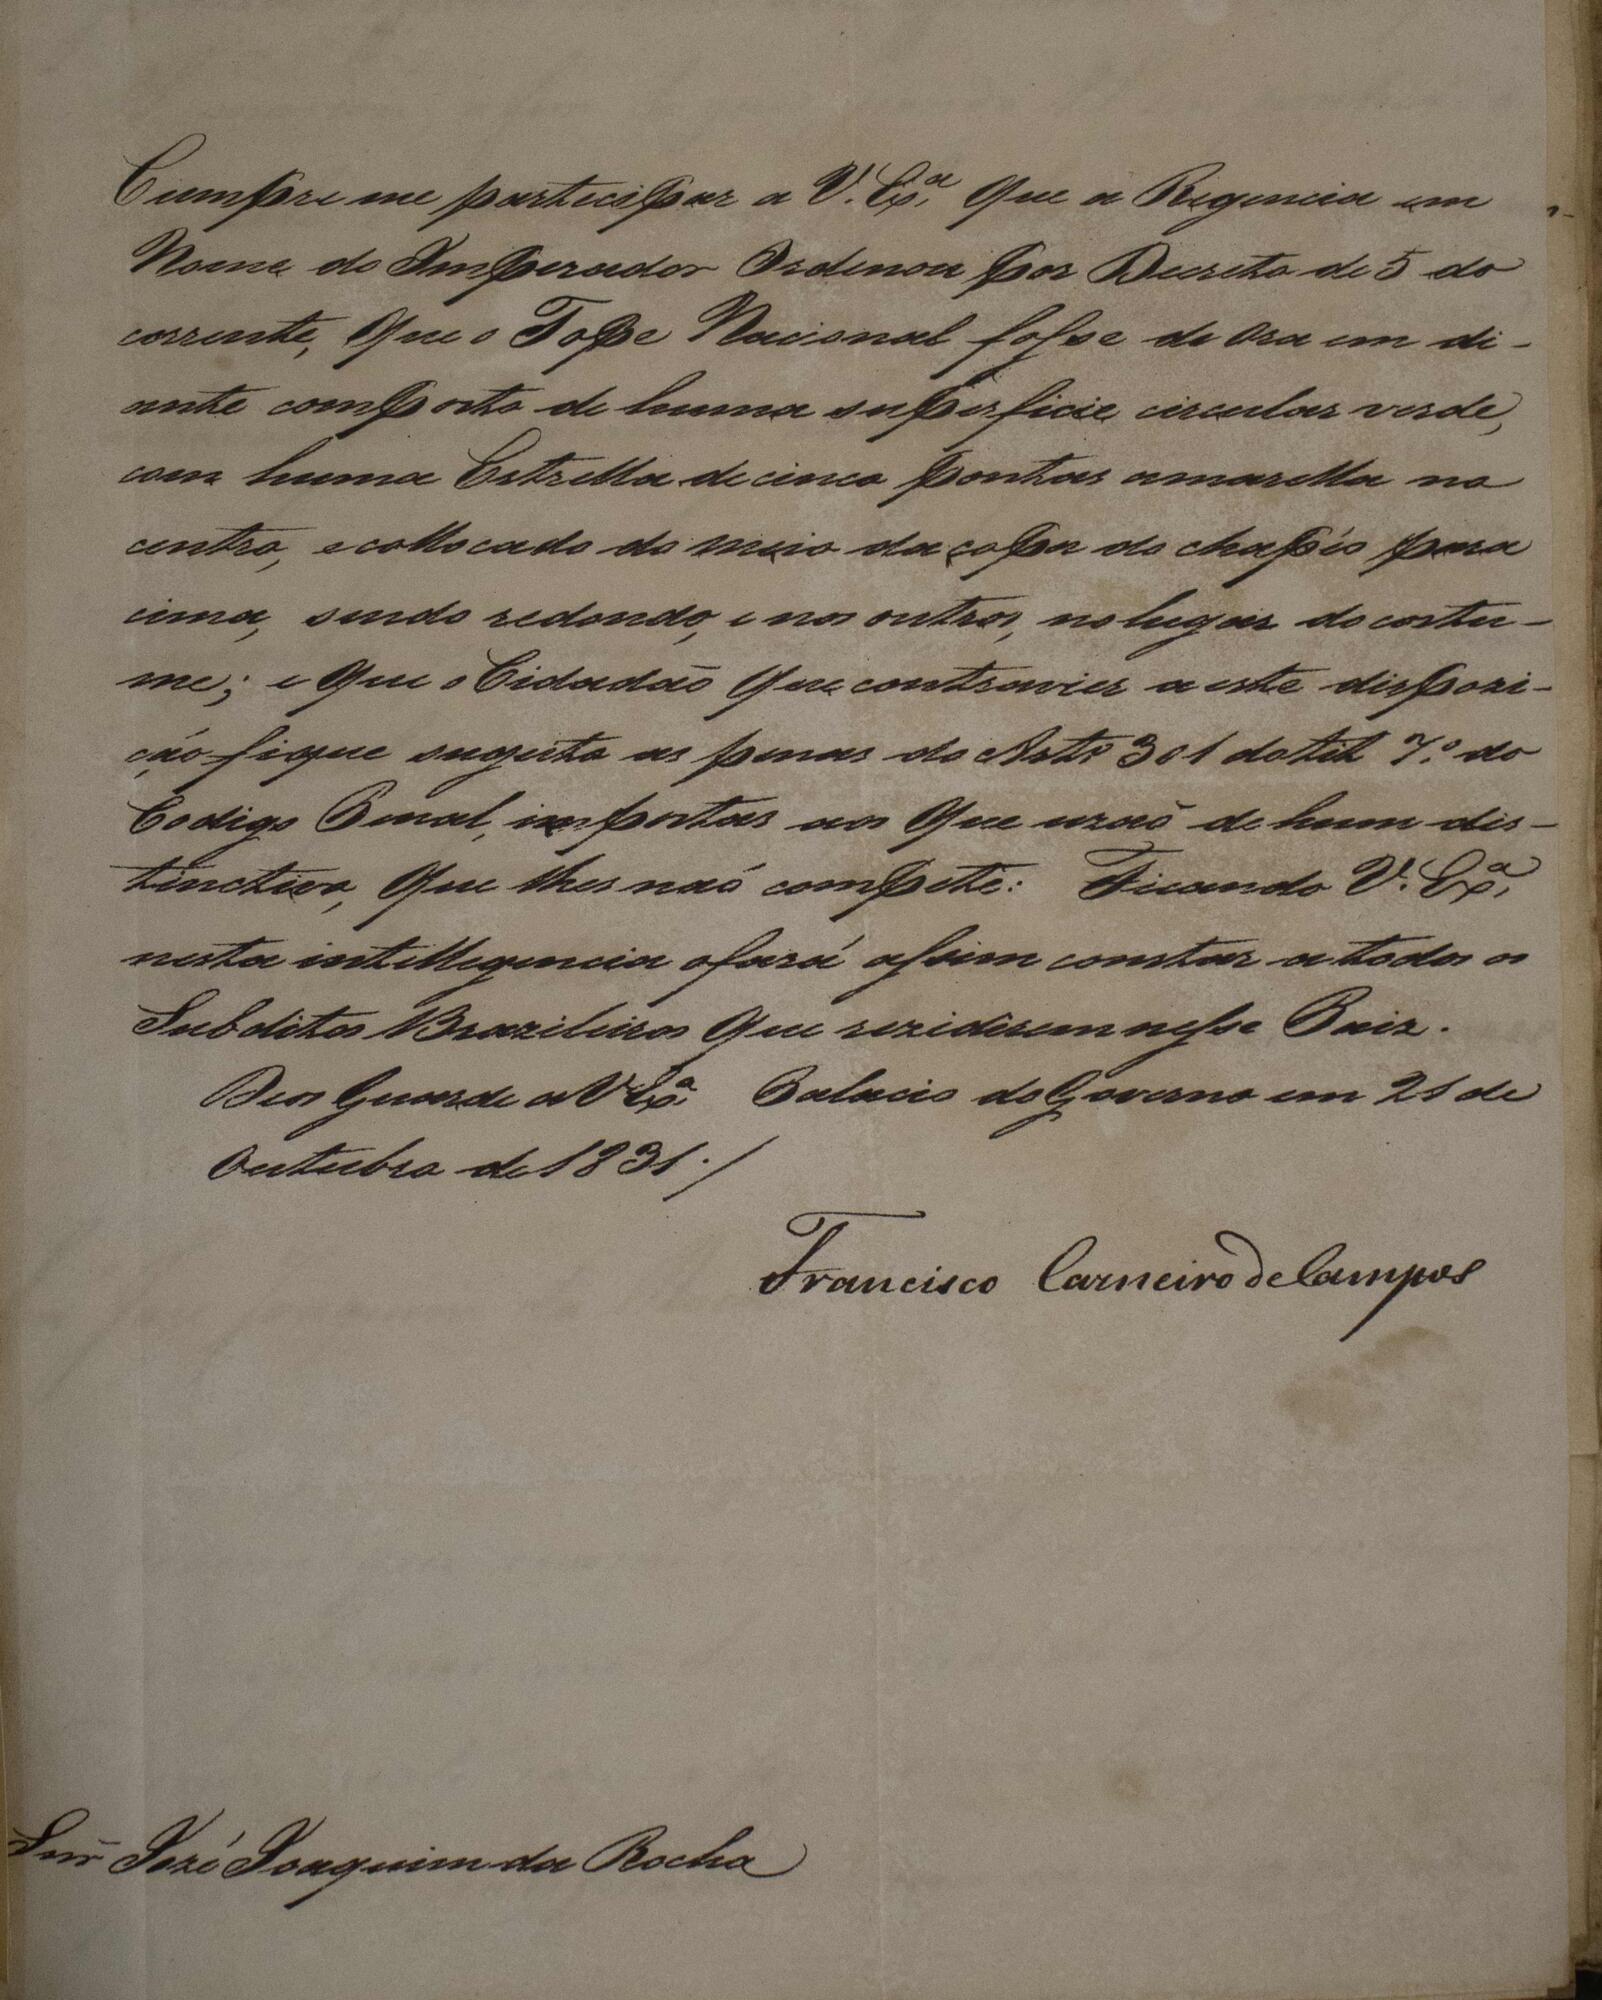 Cumpre me participar a V. Ex.ª Que a Regencia em
Nome do Imperador Ordenou por Decreto de 5 do
corrente, Que o Tope Nacional fosse de ora em di-
ante composto de huma superficie circular verde,
com huma Estrella de cinco pontas amarella no
centro, e collocado do meio da copa do chapéo para
cima, sendo redondo, e nos outros, no lugar do costu-
me; e Que o Cidadaõ Que contravier a esta dispozi-
ção fique sugeito as penas do Artº 301 do tit 7.º do
Codigo Penal, impostas aos Que uzaõ de hum dis-
tinctivo, Que lhes naõ compete: Ficando V. Ex.ª
nesta intelligencia o fará assim constar a todos os
Subditos Brazileiros Que rezidirem nesse Paiz.
Deos Guarde a V Ex.ª Palacio do Governo em 21 de
Outubro de 1831./
Francisco Carneiro de Campos
Snr̃ Jozé Joaquim da Rocha